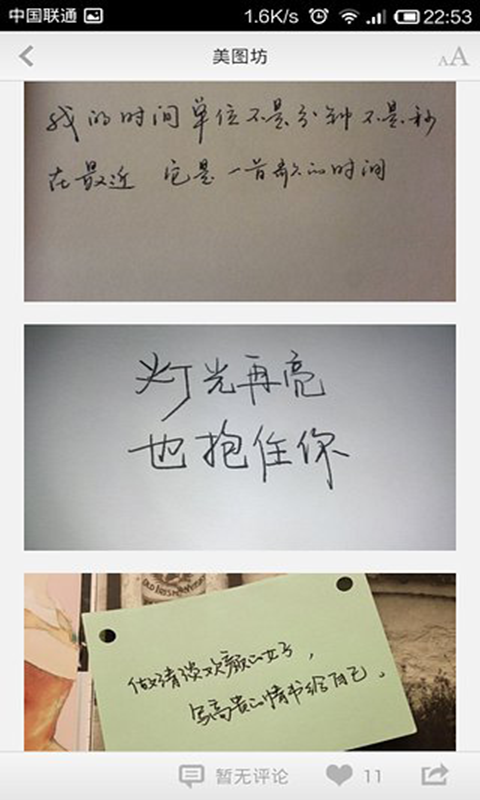 中国联通 1.6K/s 22:53
美图坊 AA
我的时间单位不是分钟 不是秒
在最近 它是一首歌的时间
灯光再亮
也抱住你
做清淡欢颜的女子，
写高贵的情书给自己。
暂无评论 11